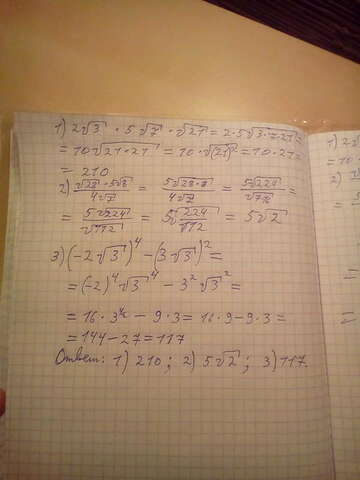 1) 2√3 · 5√7 · √21 = 2·5√3·7·21 =
= 10√21·21 = 10·√(21)² = 10·21 =
= 210
2) √28·5√8/4√7 = 5√28·8/4√7 = 5√224/√112 =
= 5√224/√112 = 5√224/112 = 5√2
3) (-2√3)⁴ - (3√3)² =
= (-2)⁴√3⁴ - 3²√3² =
= 16·3² - 9·3 = 16·9-9·3 =
= 144-27 = 117
Ответ: 1) 210; 2) 5√2; 3) 117.